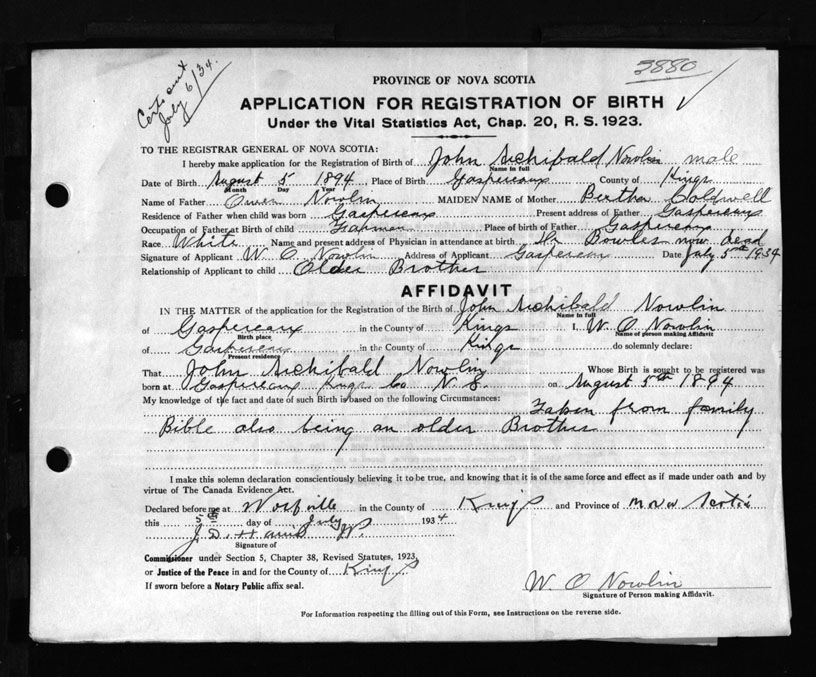 Cert sent
July 6/34.
3880
PROVINCE OF NOVA SCOTIA
APPLICATION FOR REGISTRATION OF BIRTH
Under the Vital Statistics Act, Chap. 20, R. S. 1923.
TO THE REGISTRAR GENERAL OF NOVA SCOTIA:
I hereby make application for the Registration of Birth of John Archibald Nowlin male
Name in full
Date of Birth August 5 1894 Place of Birth Gaspereaux County of Kings
Month Day Year
Name of Father Owen Nowlin MAIDEN NAME of Mother Bertha Coldwell
Residence of Father when child was born Gaspereaux Present address of Father Gaspereaux
Occupation of Father at Birth of child Farmer Place of birth of Father Gaspereaux
Race White Name and present address of Physician in attendance at birth Dr Bowles now dead
Signature of Applicant W. O. Nowlin Address of Applicant Gaspereau Date July 5th 1934
Relationship of Applicant to child Older Brother
AFFIDAVIT
IN THE MATTER of the application for the Registration of the Birth of John Archibald Nowlin
Name in full
of Gaspereaux in the County of Kings I, W O Nowlin
Birth place Name of person making Affidavit
of Gaspereau in the County of Kings do solemnly declare:
Present residence
That John Archibald Nowlin Whose Birth is sought to be registered was
born at Gaspereaux Kings Co N. S. on August 5th 1894
My knowledge of the fact and date of such Birth is based on the following Circumstances:
Taken from family
Bible also being an older Brother
I make this solemn declaration conscientiously believing it to be true, and knowing that it is of the same force and effect as if made under oath and by
virtue of The Canada Evidence Act.
Declared before me at Wolfville in the County of Kings and Province of Nova Scotia
this 5th day of July 1934
J. D. Harris JP
Signature of
Commissioner under Section 5, Chapter 38, Revised Statutes, 1923,
or Justice of the Peace in and for the County of Kings
If sworn before a Notary Public affix seal.
W. O Nowlin
Signature of Person making Affidavit.
For Information respecting the filling out of this Form, see Instructions on the reverse side.